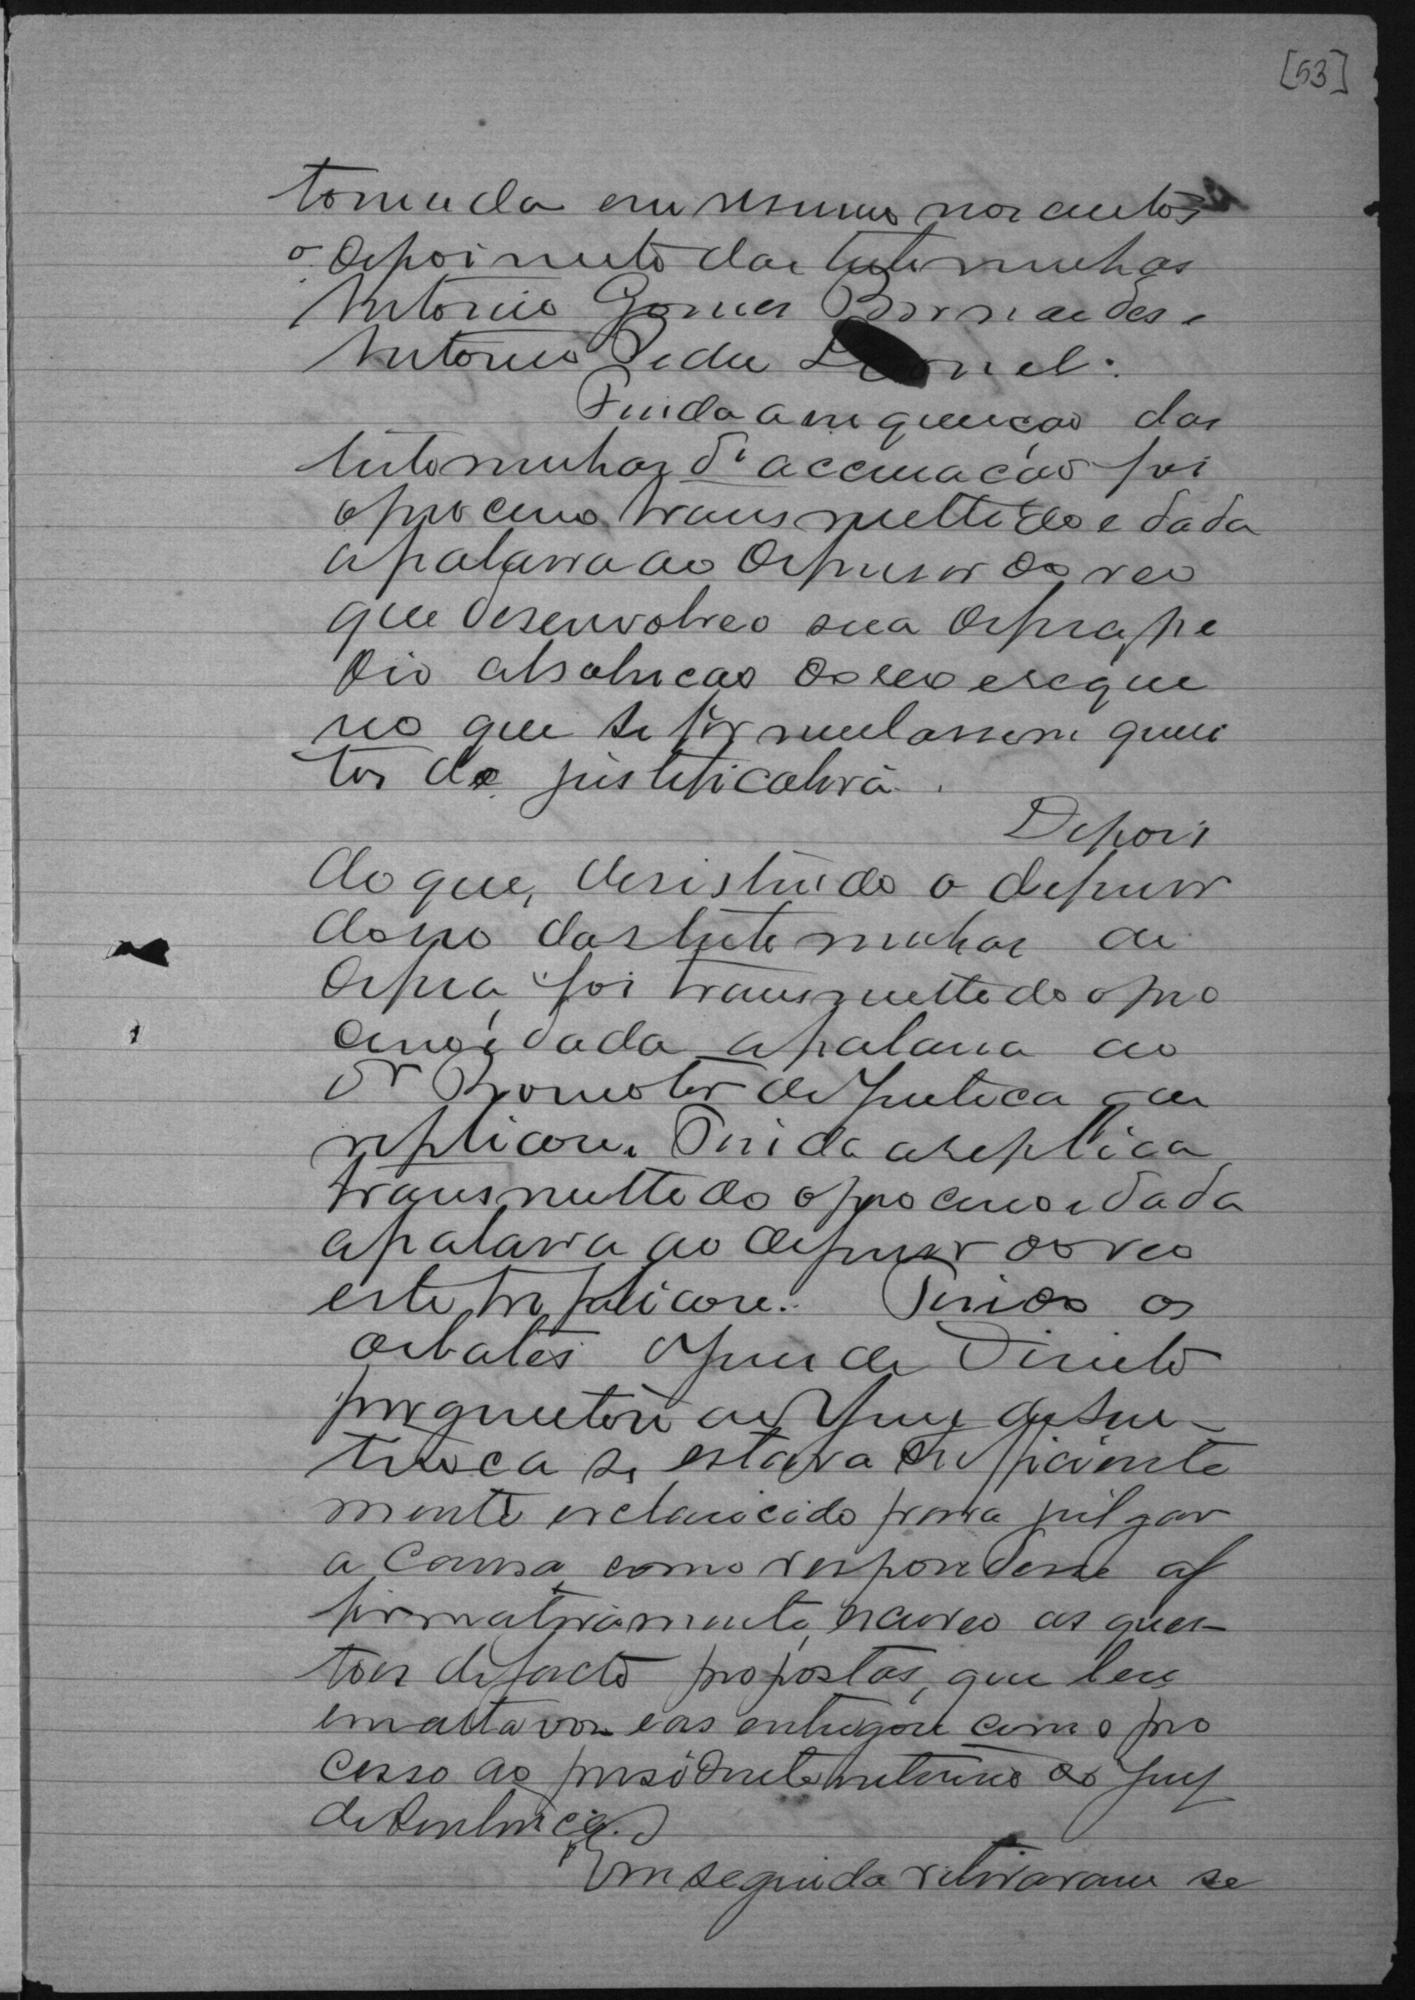 [53]
tomada em resumo nos autos
o depoimento das testemunhas
Antonio Gomes Bernardes e
Antonio Pedro Leonel.
Finda a inquirição das
testemunhas d'accusação foi
o processo transmettido e dada
a palavra ao defensor do reo
que desenvolveo sua defesa, pe
dio absolvicao do reo e reque
reo que se formulassem quesi
tos de justificativa.
Depois
do que, desistindo o defensor
do reo das testemunhas de
defesa foi transmettido o pro
cesso e dada a palavra ao
Dr Promotor de Justica que
replicou. Finda a replica
transmettido o processo e dada
a palavra ao defensor do reo
este treplicou. Findos os
debates o Juiz de Direito
perguntou ao Jury de Sen-
tença se estava sufficiente
mente esclarecido para julgar
a causa como respondesse af
firmativamente, escreveo as ques-
tões de facto propostas, que leu
em alta voz e as entregou com o pro
cesso ao presidente interino do Jury
de Sentença.
Em seguida retiraram se